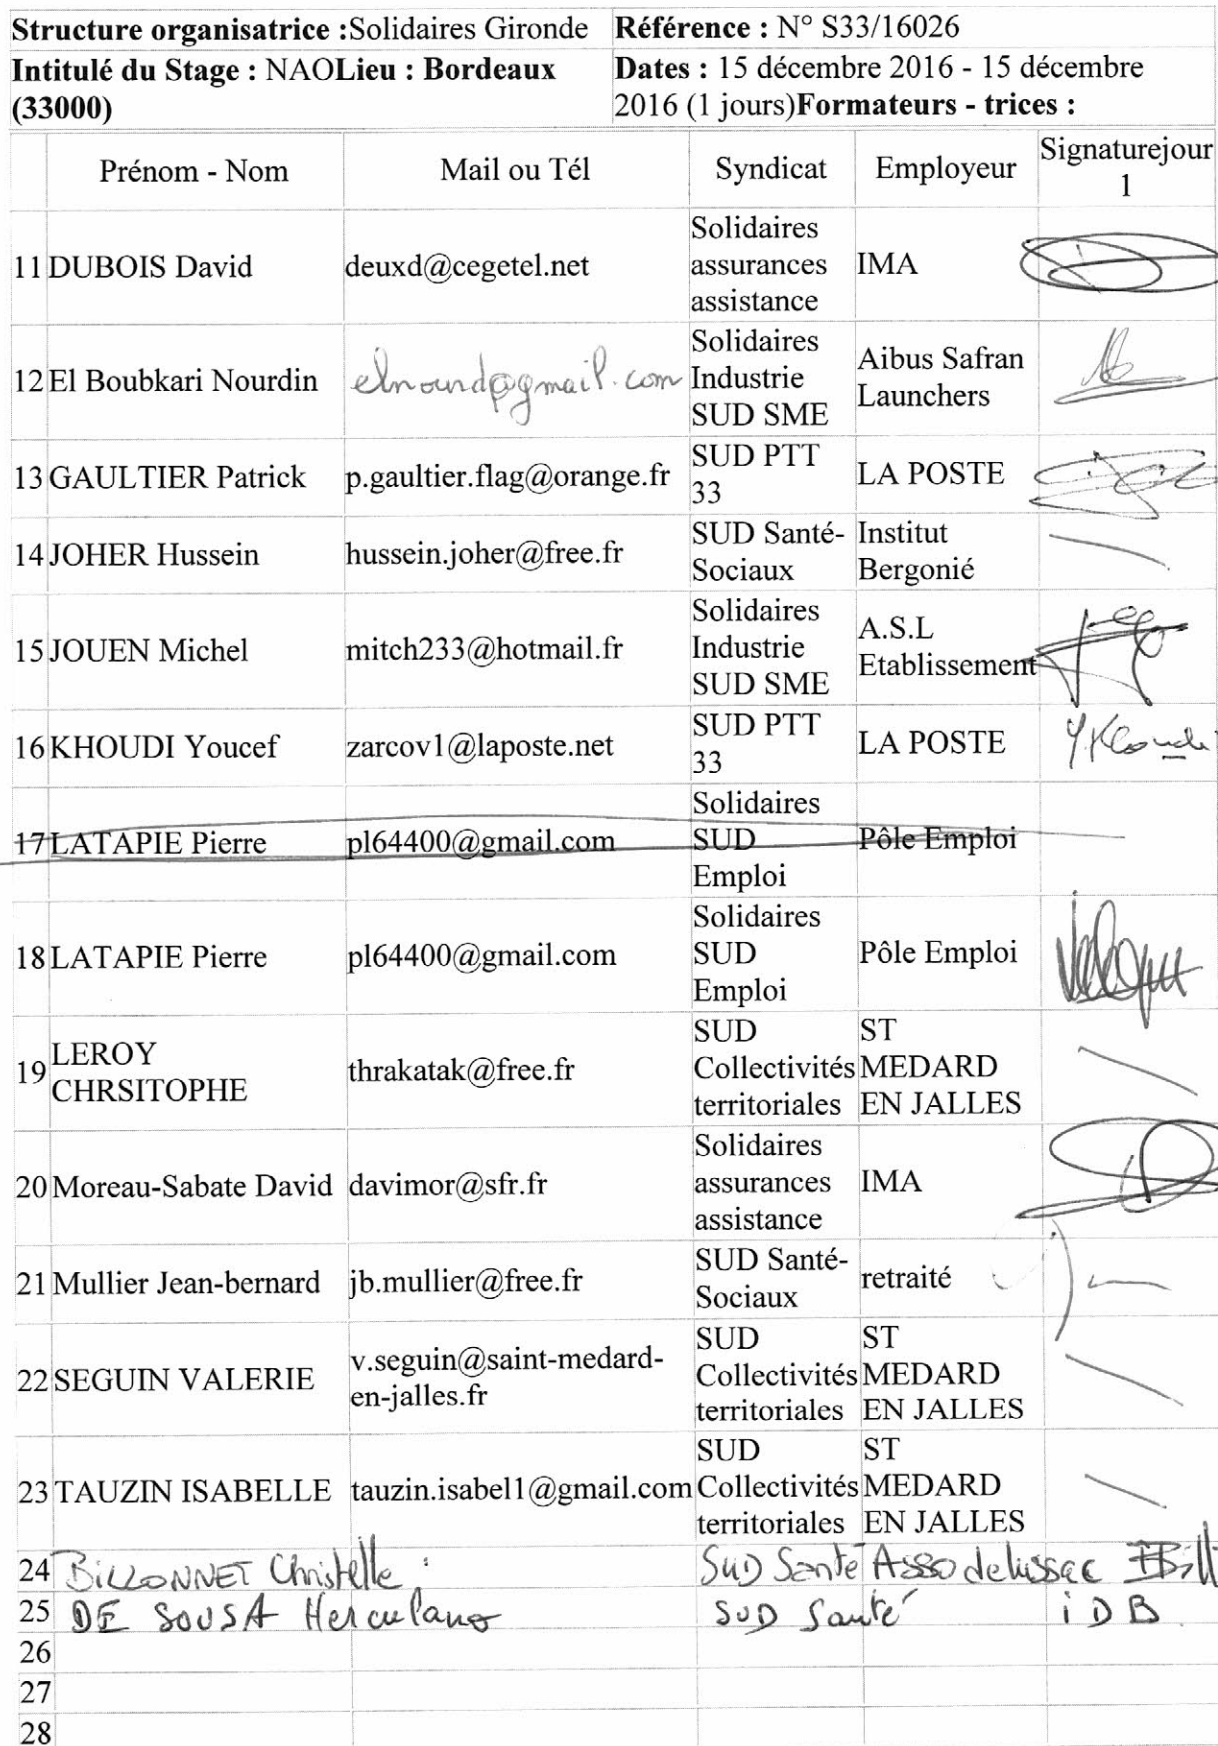 Structure organisatrice :Solidaires Gironde Référence : N° S33/16026
Intitulé du Stage : NAOLieu : Bordeaux Dates : 15 décembre 2016 - 15 décembre
(33000) 2016 (1 jours)Formateurs - trices :
Prénom - Nom Mail ou Tél Syndicat Employeur Signaturejour
1
11 DUBOIS David deuxd@cegetel.net Solidaires
assurances
assistance IMA
12 El Boubkari Nourdin elnourd@gmail.com Solidaires
Industrie
SUD SME Aibus Safran
Launchers
13 GAULTIER Patrick p.gaultier.flag@orange.fr SUD PTT
33 LA POSTE
14 JOHER Hussein hussein.joher@free.fr SUD Santé-
Sociaux Institut
Bergonié
15 JOUEN Michel mitch233@hotmail.fr Solidaires
Industrie
SUD SME A.S.L
Etablissement
16 KHOUDI Youcef zarcov1@laposte.net SUD PTT
33 LA POSTE
17 LATAPIE Pierre pl64400@gmail.com Solidaires
SUD
Emploi Pôle Emploi
18 LATAPIE Pierre pl64400@gmail.com Solidaires
SUD
Emploi Pôle Emploi
19 LEROY
CHRSITOPHE thrakatak@free.fr SUD
Collectivités
territoriales ST
MEDARD
EN JALLES
20 Moreau-Sabate David davimor@sfr.fr Solidaires
assurances
assistance IMA
21 Mullier Jean-bernard jb.mullier@free.fr SUD Santé-
Sociaux retraité
22 SEGUIN VALERIE v.seguin@saint-medard-
en-jalles.fr SUD
Collectivités
territoriales ST
MEDARD
EN JALLES
23 TAUZIN ISABELLE tauzin.isabel1@gmail.com SUD
Collectivités
territoriales ST
MEDARD
EN JALLES
24 BILLONNET Christelle SUD Santé Asso de
25 DE SOUSA Herculano SUD Santé iDB
26
27
28